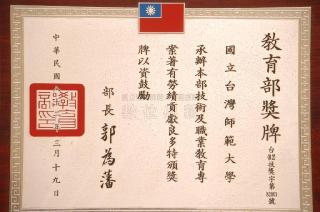 教育部獎牌
國立台灣師範大學
承辦本部技術及職業教育專
案著有勞績貢獻良多特頒獎
牌以資鼓勵
部長 郭為藩
中華民國
年三月十九日